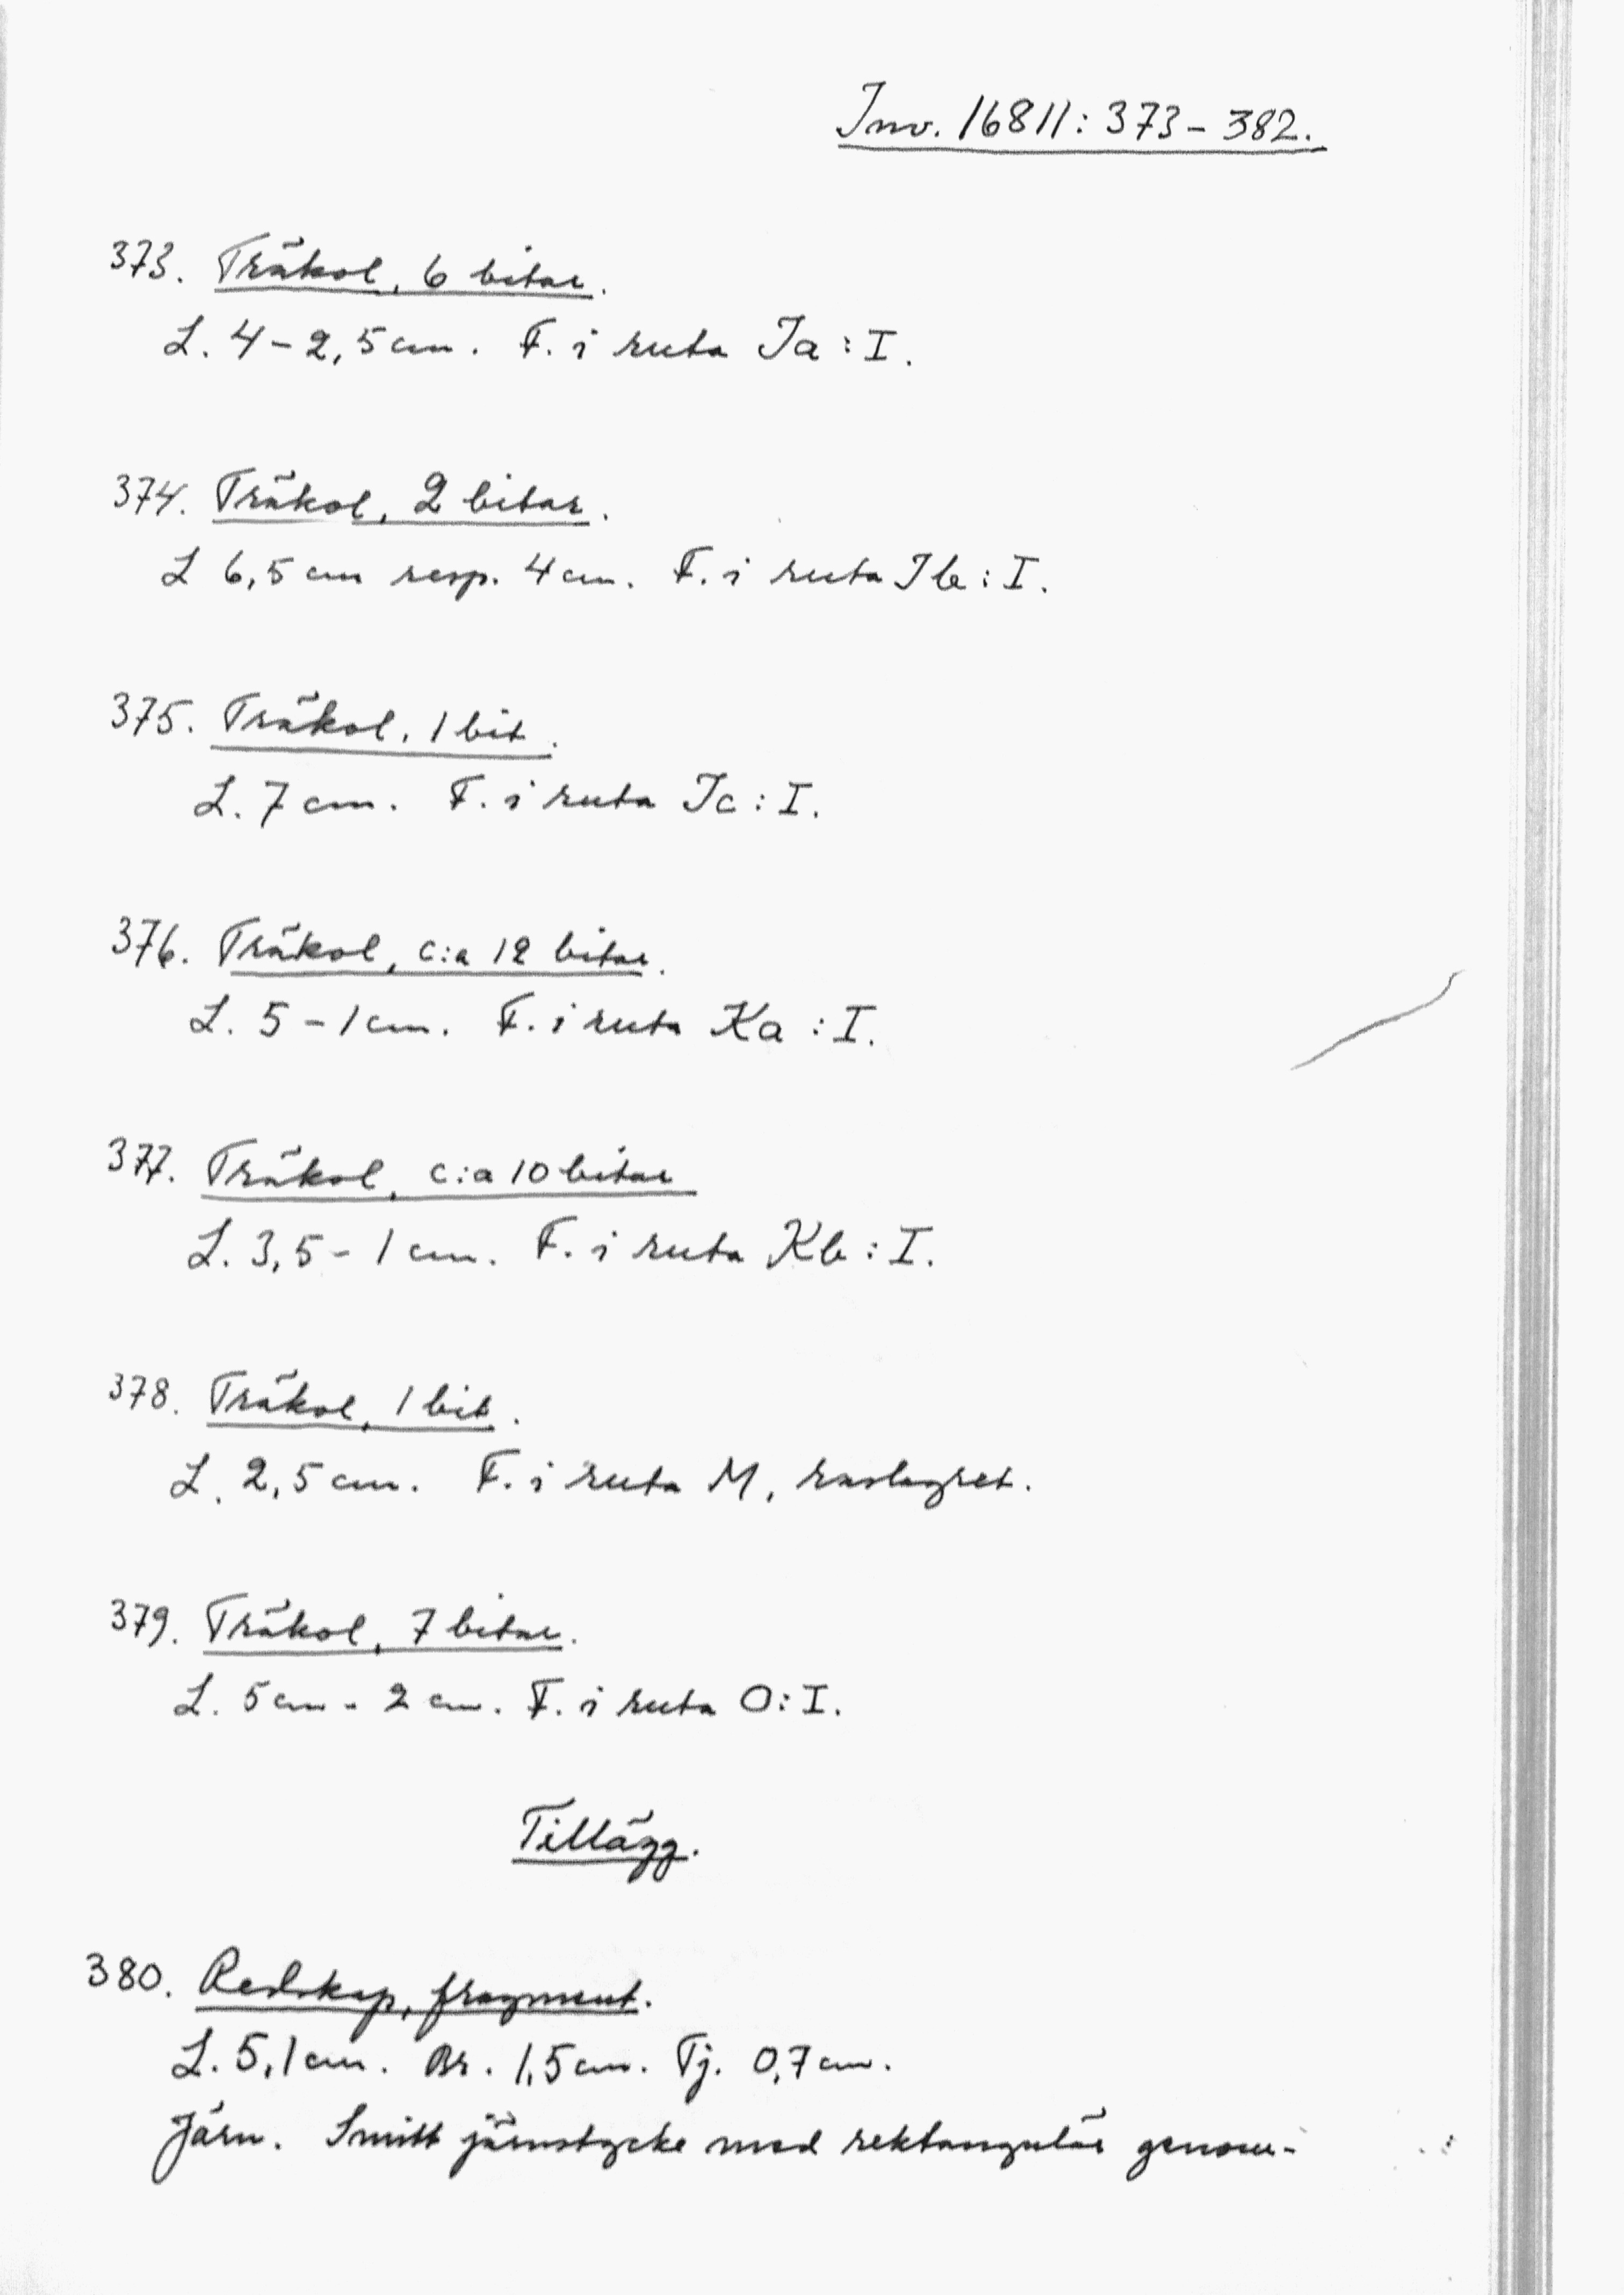 Inv. 16811: 373 – 382.
373. Träkol, 6 bitar.
L. 4 – 2,5 cm. F. i ruta Ja : I.
374. Träkol, 2 bitar.
L 6,5 cm resp. 4 cm. F. i ruta Jb : I.
375. Träkol, 1 bit.
L. 7 cm. F. i ruta Jc : I.
376. Träkol, c:a 12 bitar.
L. 5 – 1 cm. F. i ruta Ka : I.
377. Träkol, c:a 10 bitar
L. 3,5 – 1 cm. F. i ruta Kb : I.
378. Träkol, 1 bit.
L. 2,5 cm. F. i ruta M, raslagret.
379. Träkol, 7 bitar.
L. 5 cm - 2 cm. F. i ruta O : I.
Tillägg.
380. Redskap, fragment.
L. 5,1 cm. Br. 1,5 cm. Tj. 0,7 cm.
Järn. Smitt järnstycke med rektangulär genom-